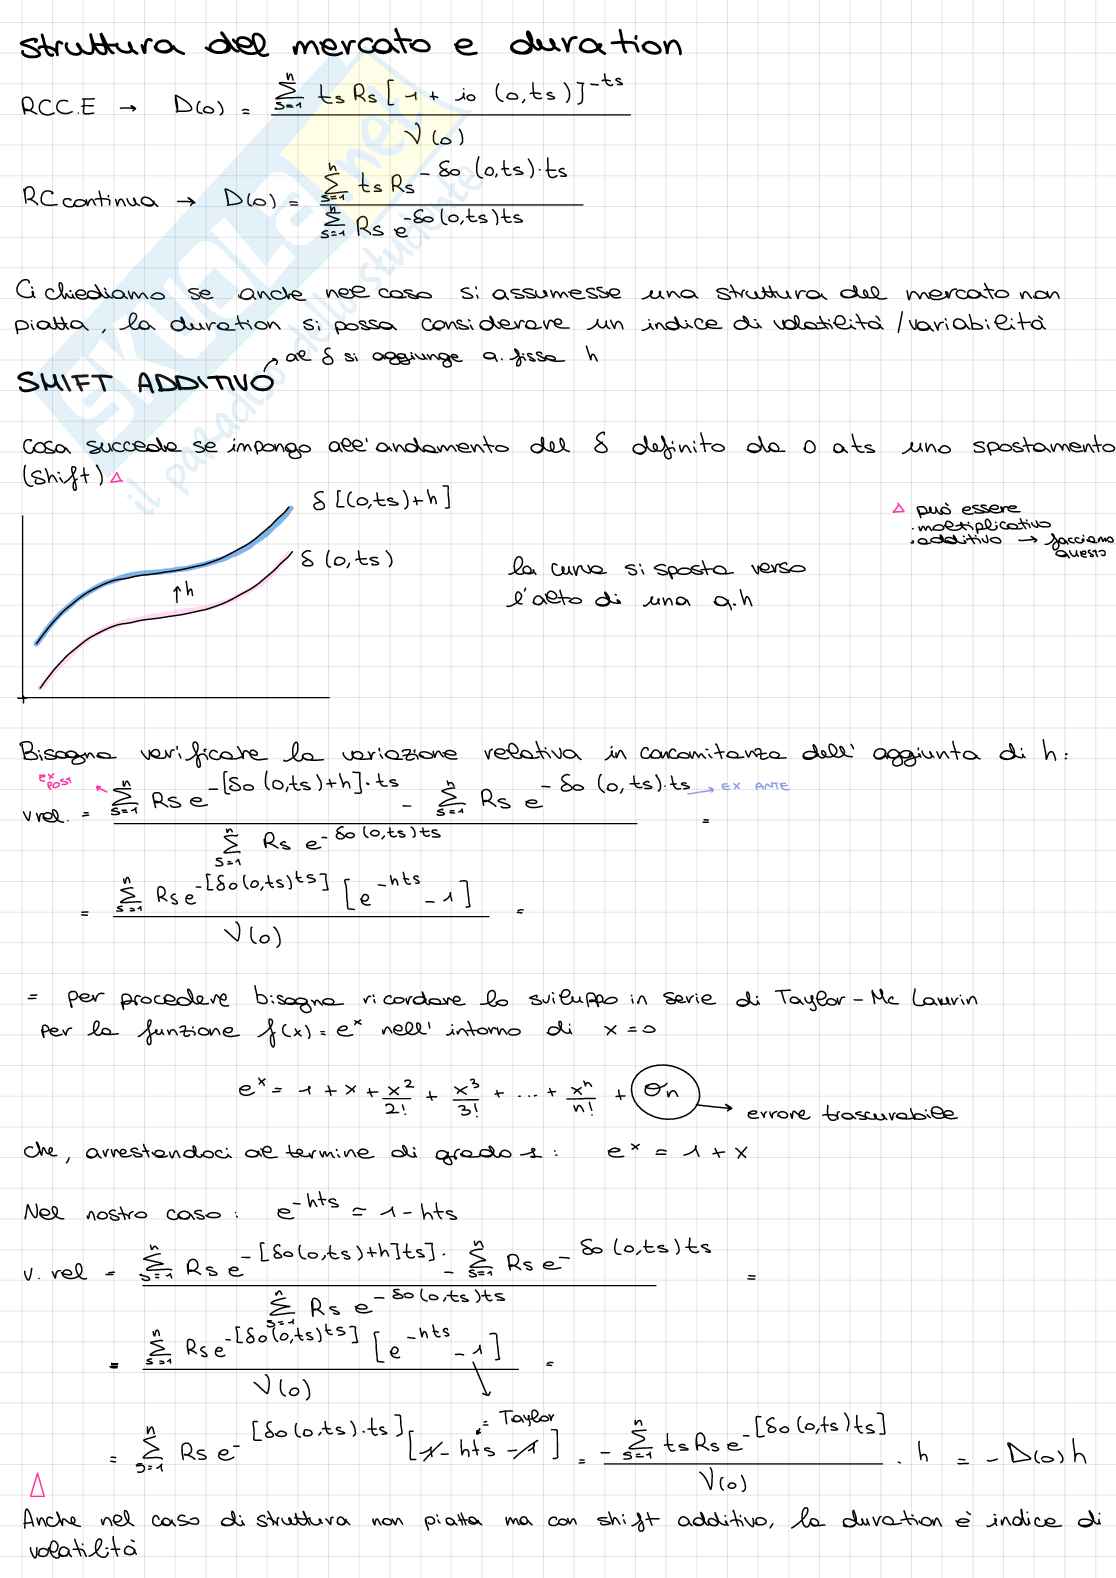 struttura del mercato e duration
RCC.E → D(0) = \frac{\sum_{s=1}^{n} ts Rs [1 + i0 (0,ts)]^{-ts}}{V(0)}
RC continua → D(0) = \frac{\sum_{s=1}^{n} ts Rs^{-δ0 (0,ts)·ts}}{\sum_{s=1}^{n} Rs e^{-δ0(0,ts)ts}}
Ci chiediamo se anche nel caso si assumesse una struttura del mercato non
piatta, la duration si possa considerare un indice di volatilità / variabilità
→ al δ si aggiunge q. fissa h
SHIFT ADDITIVO
cosa succede se impongo all'andamento del δ definito da 0 a ts uno spostamento
(shift) △
δ [(0,ts)+h]
δ (0,ts)
↑h
la curva si sposta verso
l'alto di una q.h
△ può essere
.moltiplicativo
.additivo → facciamo
questo
Bisogna verificare la variazione relativa in concomitanza dell' aggiunta di h:
ex post
v rel. = \frac{\sum_{s=1}^{n} Rs e^{-[δ0 (0,ts)+h]·ts} - \sum_{s=1}^{n} Rs e^{-δ0 (0,ts)·ts}}{\sum_{s=1}^{n} Rs e^{-δ0(0,ts)ts}} =
→ EX ANTE
= \frac{\sum_{s=1}^{n} Rs e^{-[δ0(0,ts)ts]} [e^{-hts} - 1]}{V(0)} =
= per procedere bisogna ricordare lo sviluppo in serie di Taylor - Mc Laurin
per la funzione f(x) = e^x nell' intorno di x = 0
e^x = 1 + x + \frac{x^2}{2!} + \frac{x^3}{3!} + ... + \frac{x^n}{n!} + σn → errore trascurabile
che, arrestandoci al termine di grado 1: e^x = 1 + x
Nel nostro caso: e^{-hts} ≃ 1 - hts
v. rel = \frac{\sum_{s=1}^{n} Rs e^{-[δ0(0,ts)+h]ts]}. - \sum_{s=1}^{n} Rs e^{-δ0 (0,ts)ts}}{\sum_{s=1}^{n} Rs e^{-δ0(0,ts)ts}} =
= \frac{\sum_{s=1}^{n} Rs e^{-[δ0(0,ts)ts]} [e^{-hts} - 1]}{V(0)} =
= Taylor
= \sum_{s=1}^{n} Rs e^{-[δ0(0,ts)·ts]} [1 - hts - 1] = - \frac{\sum_{s=1}^{n} ts Rs e^{-[δ0(0,ts)ts]}}{V(0)} · h = - D(0) h
△
Anche nel caso di struttura non piatta ma con shift additivo, la duration è indice di
volatilità
SKUOLA.net
il paradiso dello studente